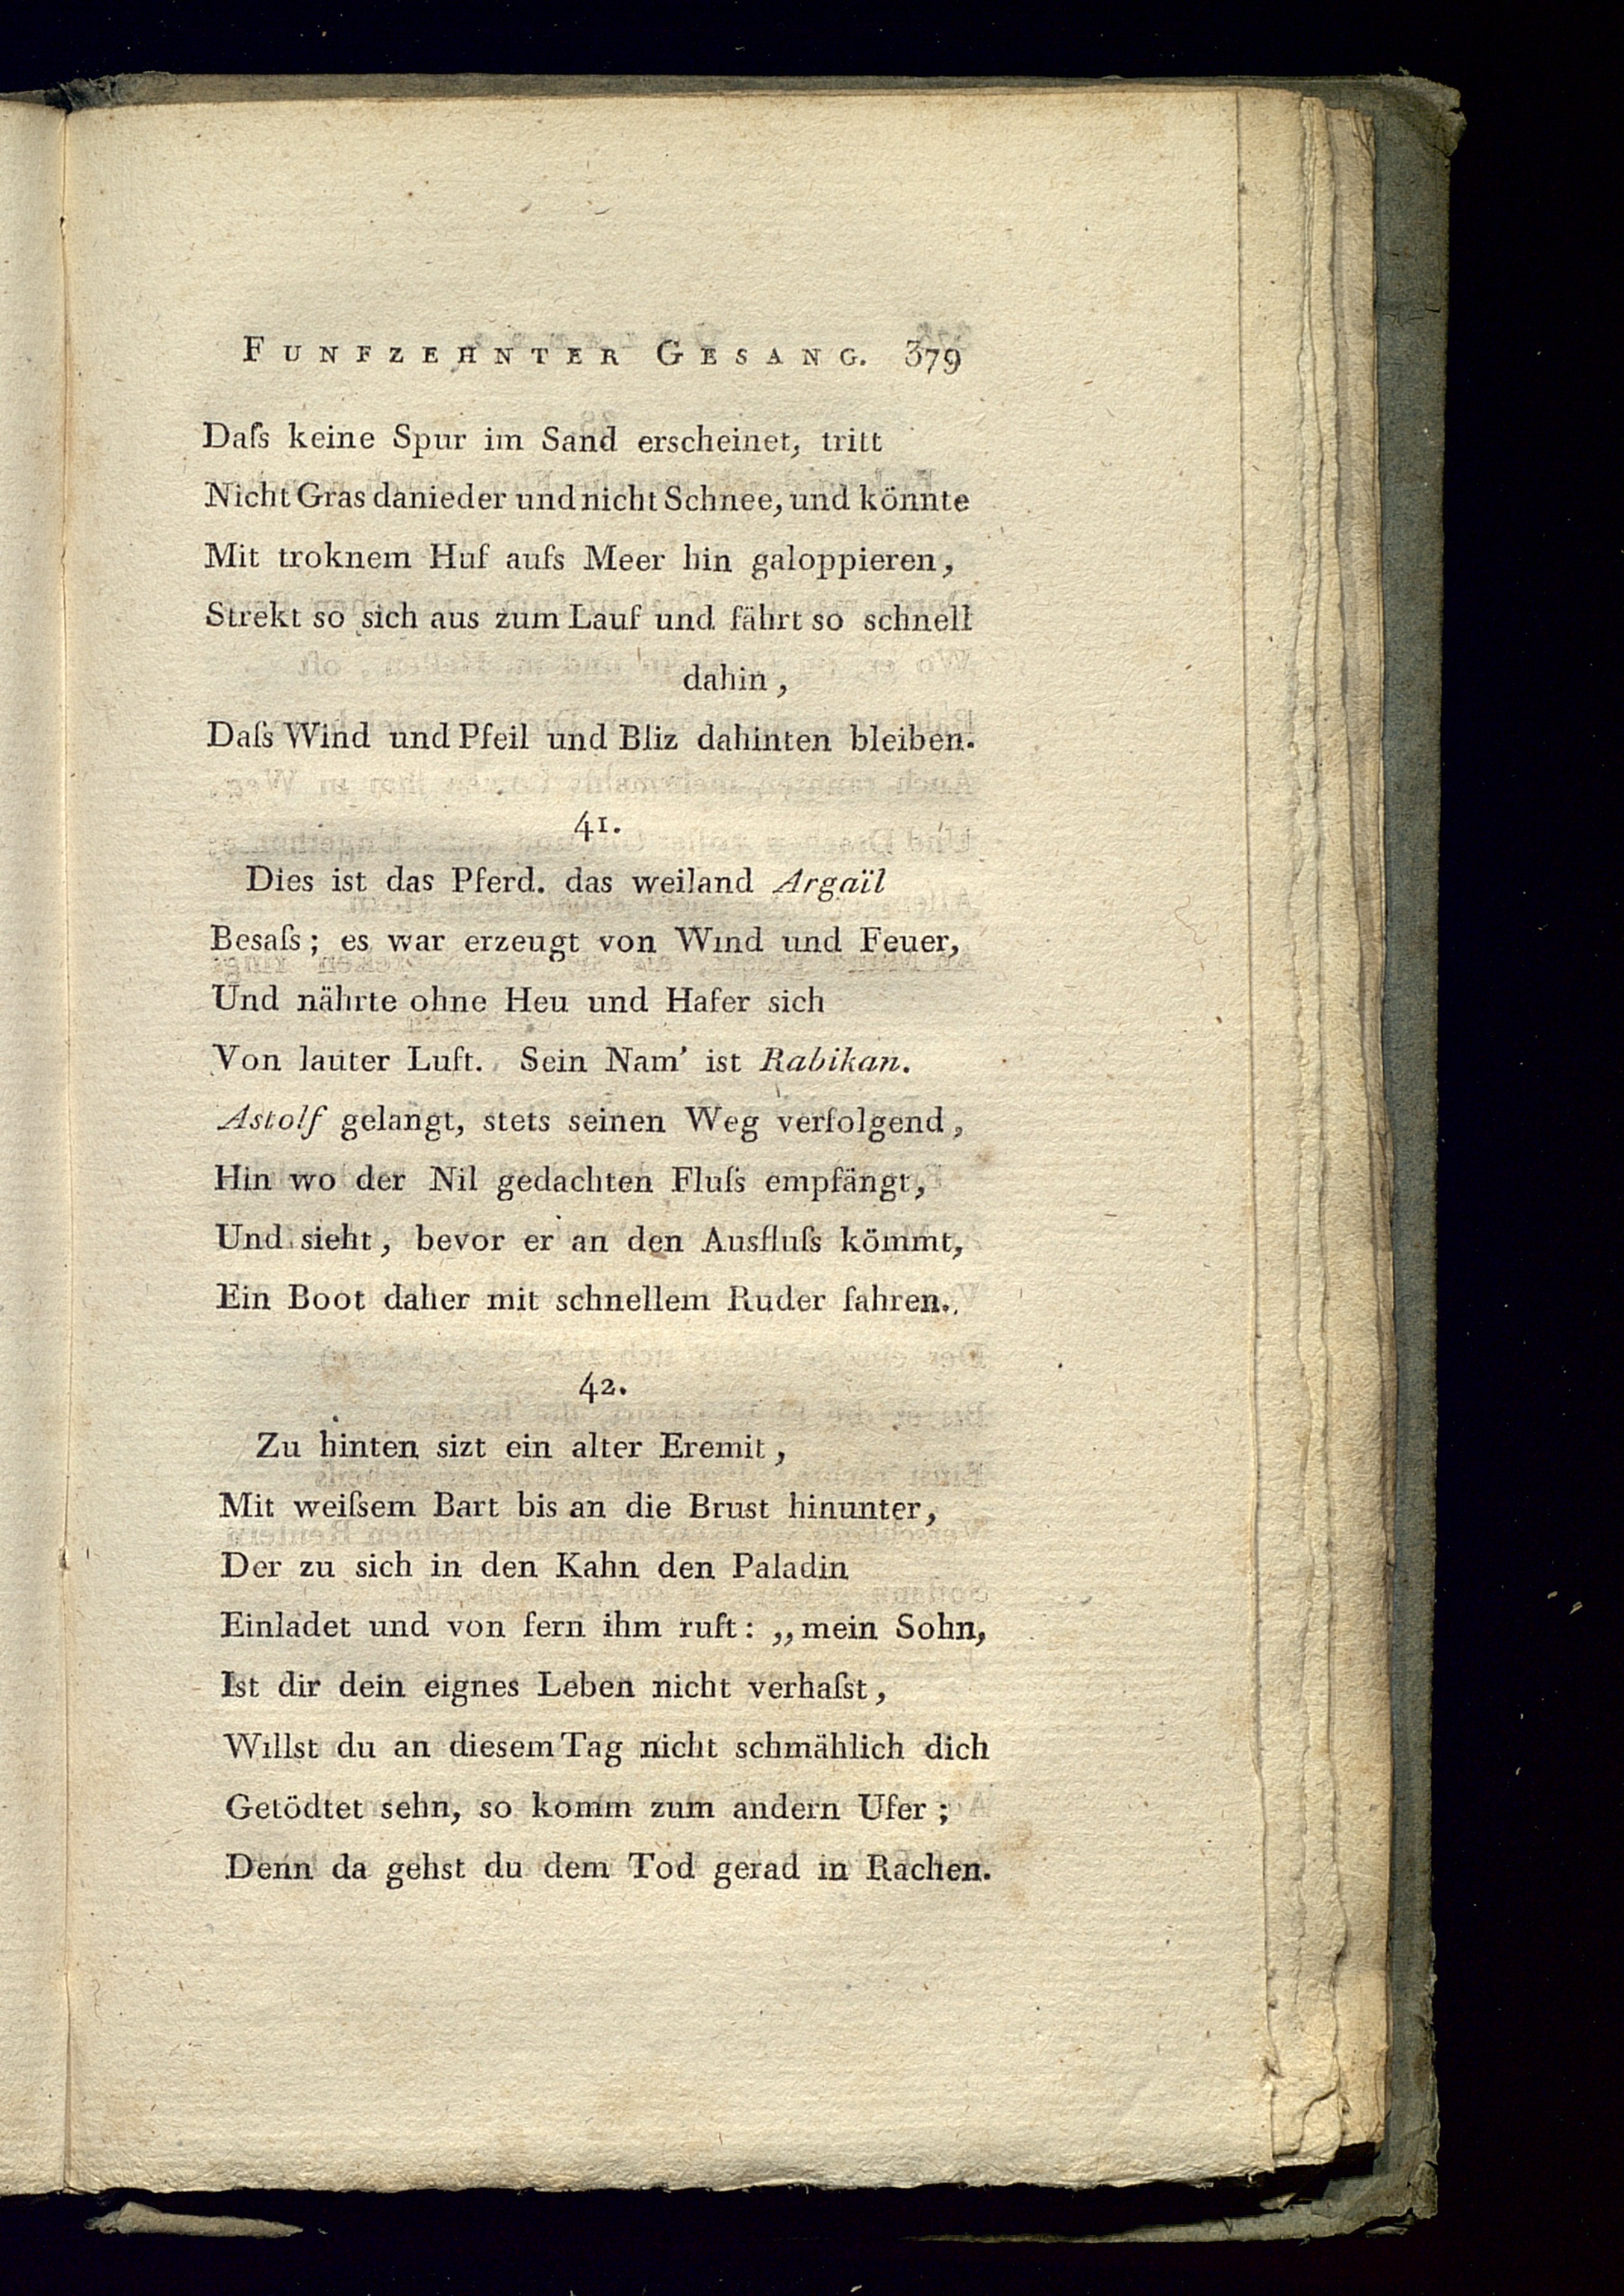 FUNFZEHNTER GESANG. 379
Daſs keine Spur im Sand erscheinet, tritt
Nicht Gras danieder und nicht Schnee, und könnte
Mit troknem Huf aufs Meer hin galoppieren,
Strekt so sich aus zum Lauf und fährt so schnell
dahin,
Daſs Wind und Pfeil und Bliz dahinten bleiben.
41.
Dies ist das Pferd. das weiland Argaïl
Besaſs; es war erzeugt von Wind und Feuer,
Und nährte ohne Heu und Hafer sich
Von lauter Luft. Sein Nam' ist Rabikan.
Astolf gelangt, stets seinen Weg verfolgend,
Hin wo der Nil gedachten Fluſs empfängt,
Und sieht, bevor er an den Ausfluſs kömmt,
Ein Boot daher mit schnellem Ruder fahren.
42.
Zu hinten sizt ein alter Eremit,
Mit weiſsem Bart bis an die Brust hinunter,
Der zu sich in den Kahn den Paladin
Einladet und von fern ihm ruft: „mein Sohn,
Ist dir dein eignes Leben nicht verhaſst,
Willst du an diesem Tag nicht schmählich dich
Getödtet sehn, so komm zum andern Ufer;
Denn da gehst du dem Tod gerad in Rachen.